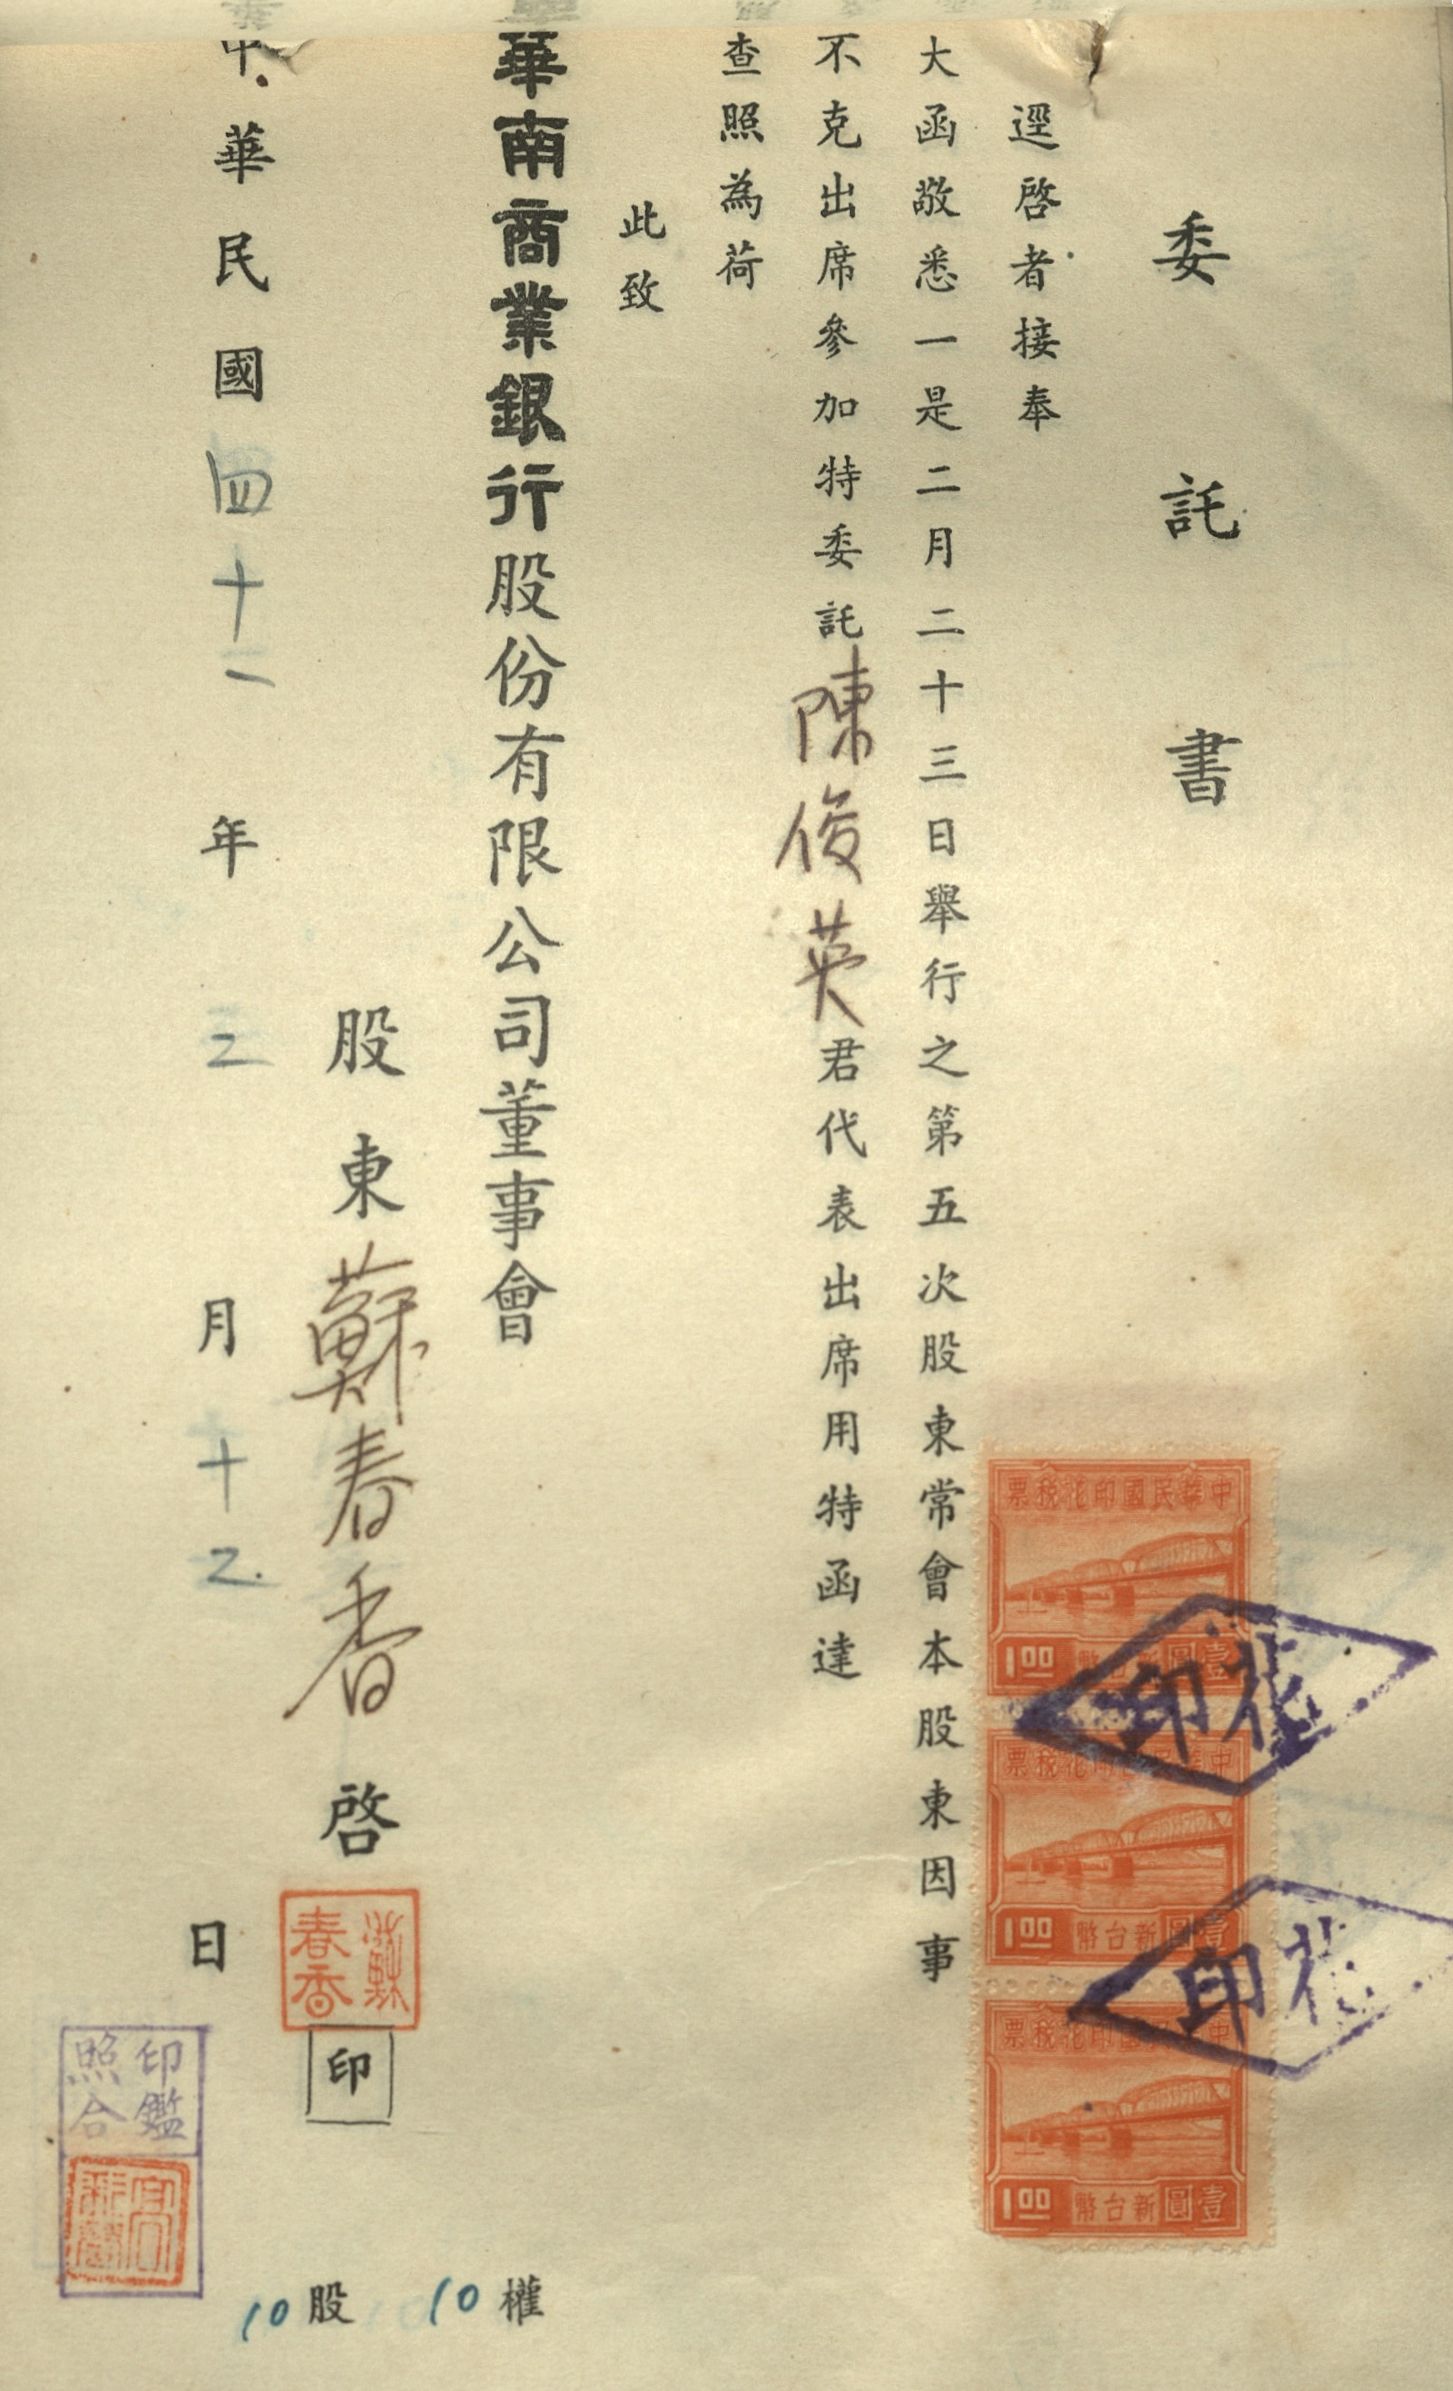 委託書
逕啓者接奉
大函敬悉一是二月二十三日舉行之第五次股東常會本股東因事
不克出席參加特委託陳俊英君代表出席用特函達
查照為荷
此致
華南商業銀行股份有限公司董事會
股東蘇春香啓
印
中華民國四十二年二月十二日
10股 10權
蘇春香
印鑑照合
中華民國印花稅票
1.00 新台幣壹圓
中華民國印花稅票
1.00 新台幣壹圓
中華民國印花稅票
1.00 新台幣壹圓
印花
印花